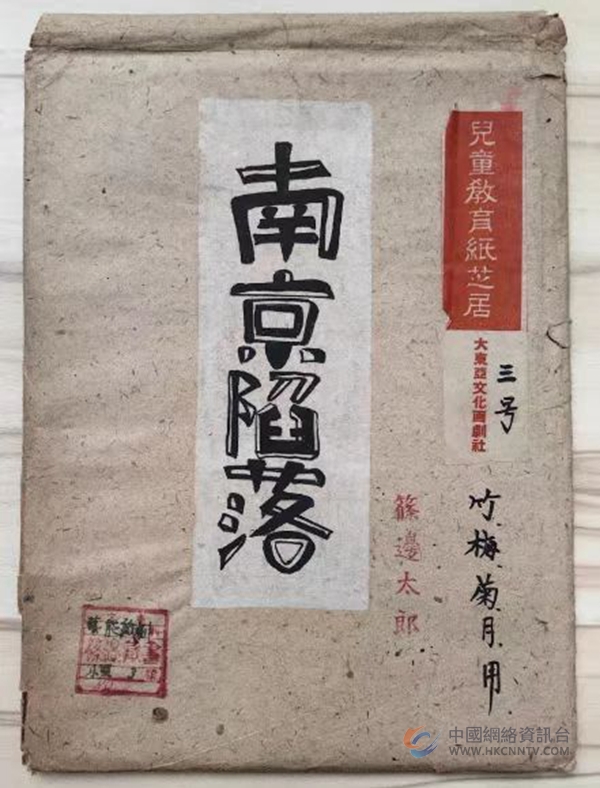 兒童敎育紙芝居
大東亞文化画劇社
三号
竹.梅.菊.月.用
南京陷落
篠邊太郎
中國網絡資訊台
WWW.HKCNNTV.COM